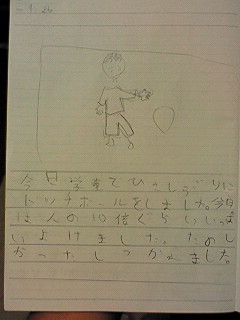 1 26
今日学校でひさしぶりに
ドッチボールをしました。今日
は人の10倍ぐらいいっぱ
いよけました。たのし
かったしつかれました。